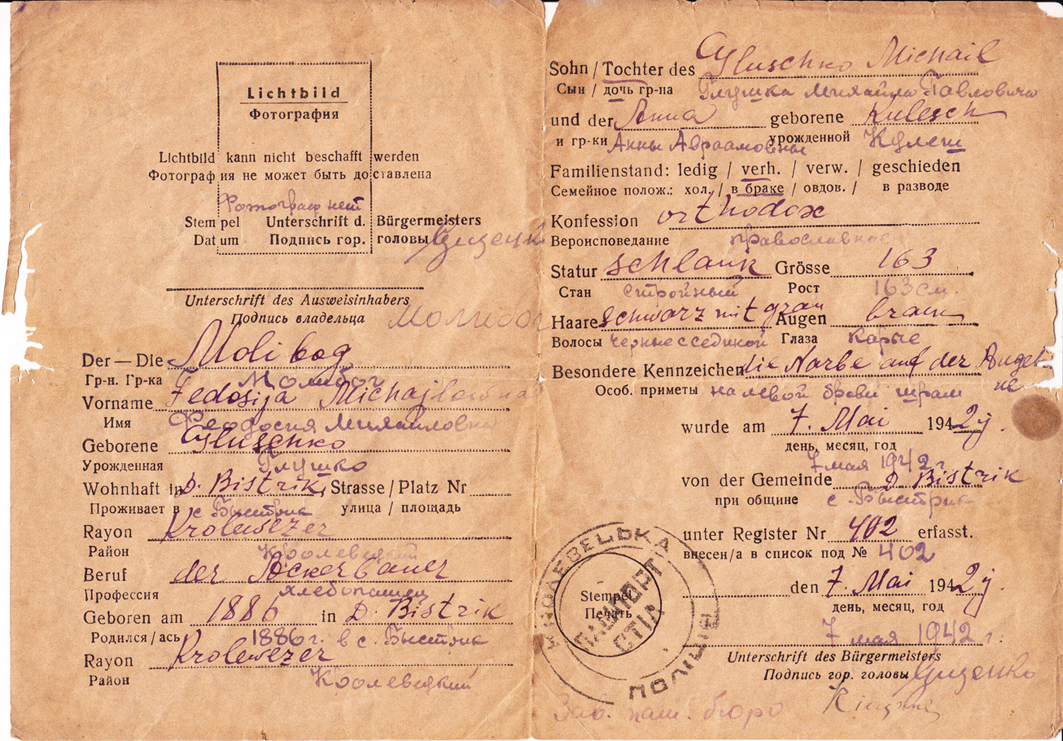 Lichtbild
Фотография
Lichtbild kann nicht beschafft werden
Фотография не может быть доставлена
Фотограф нет
Stempel Unterschrift d. Bürgermeisters
Datum Подпись гор. головы
Unterschrift des Ausweisinhabers
Подпись владельца Молибог
Der — Die Molibog
Гр-н. Гр-ка Молибог
Vorname Fedosija Michajlowna
Имя Феодосия Михайловна
Geborene Gluschko
Урожденная Глушко
Wohnhaft in D. Bistrik, Strasse / Platz Nr
Проживает в с. Быстрик улица / площадь
Rayon Krolewezer
Район Кролевецкий
Beruf der Ackerbauer
Профессия хлебопашец
Geboren am 1886 in D. Bistrik
Родился / ась 1886 г. в с. Быстрик
Rayon Krolewezer
Район Кролевецкий
Sohn / Tochter des Gluschko Michail
Сын / дочь гр-на Глушка Михайла Павловича
und der Anna geborene Kulesch
и гр-ки Анны Авраамовны урожденной Кулеш
Familienstand: ledig / verh. / verw. / geschieden
Семейное полож.: хол. / в браке / овдов. / в разводе
Konfession orthodox
Вероисповедание православное
Statur schlank Grösse 163
Стан стройный Рост 163 см.
Haare schwarz mit grau Augen braun
Волосы черные с сединой Глаза карые
Besondere Kennzeichen die Narbe auf der
Особ. приметы на левой брови шрам
wurde am 7. Mai 1942 j
день, месяц, год
7 мая 1942 г.
von der Gemeinde D. Bistrik
при общине с. Быстрик
unter Register Nr 402 erfasst.
внесен/а в список под № 402
den 7. Mai 1942 j
день, месяц, год
7 мая 1942 г.
Stempel
Печать
КРОЛЕВЕЦЬКА
ПАШПОРТ
СТІЛ
ПОЛІЦІЯ
Unterschrift des Bürgermeisters
Подпись гор. головы
Зав. пасп. бюро